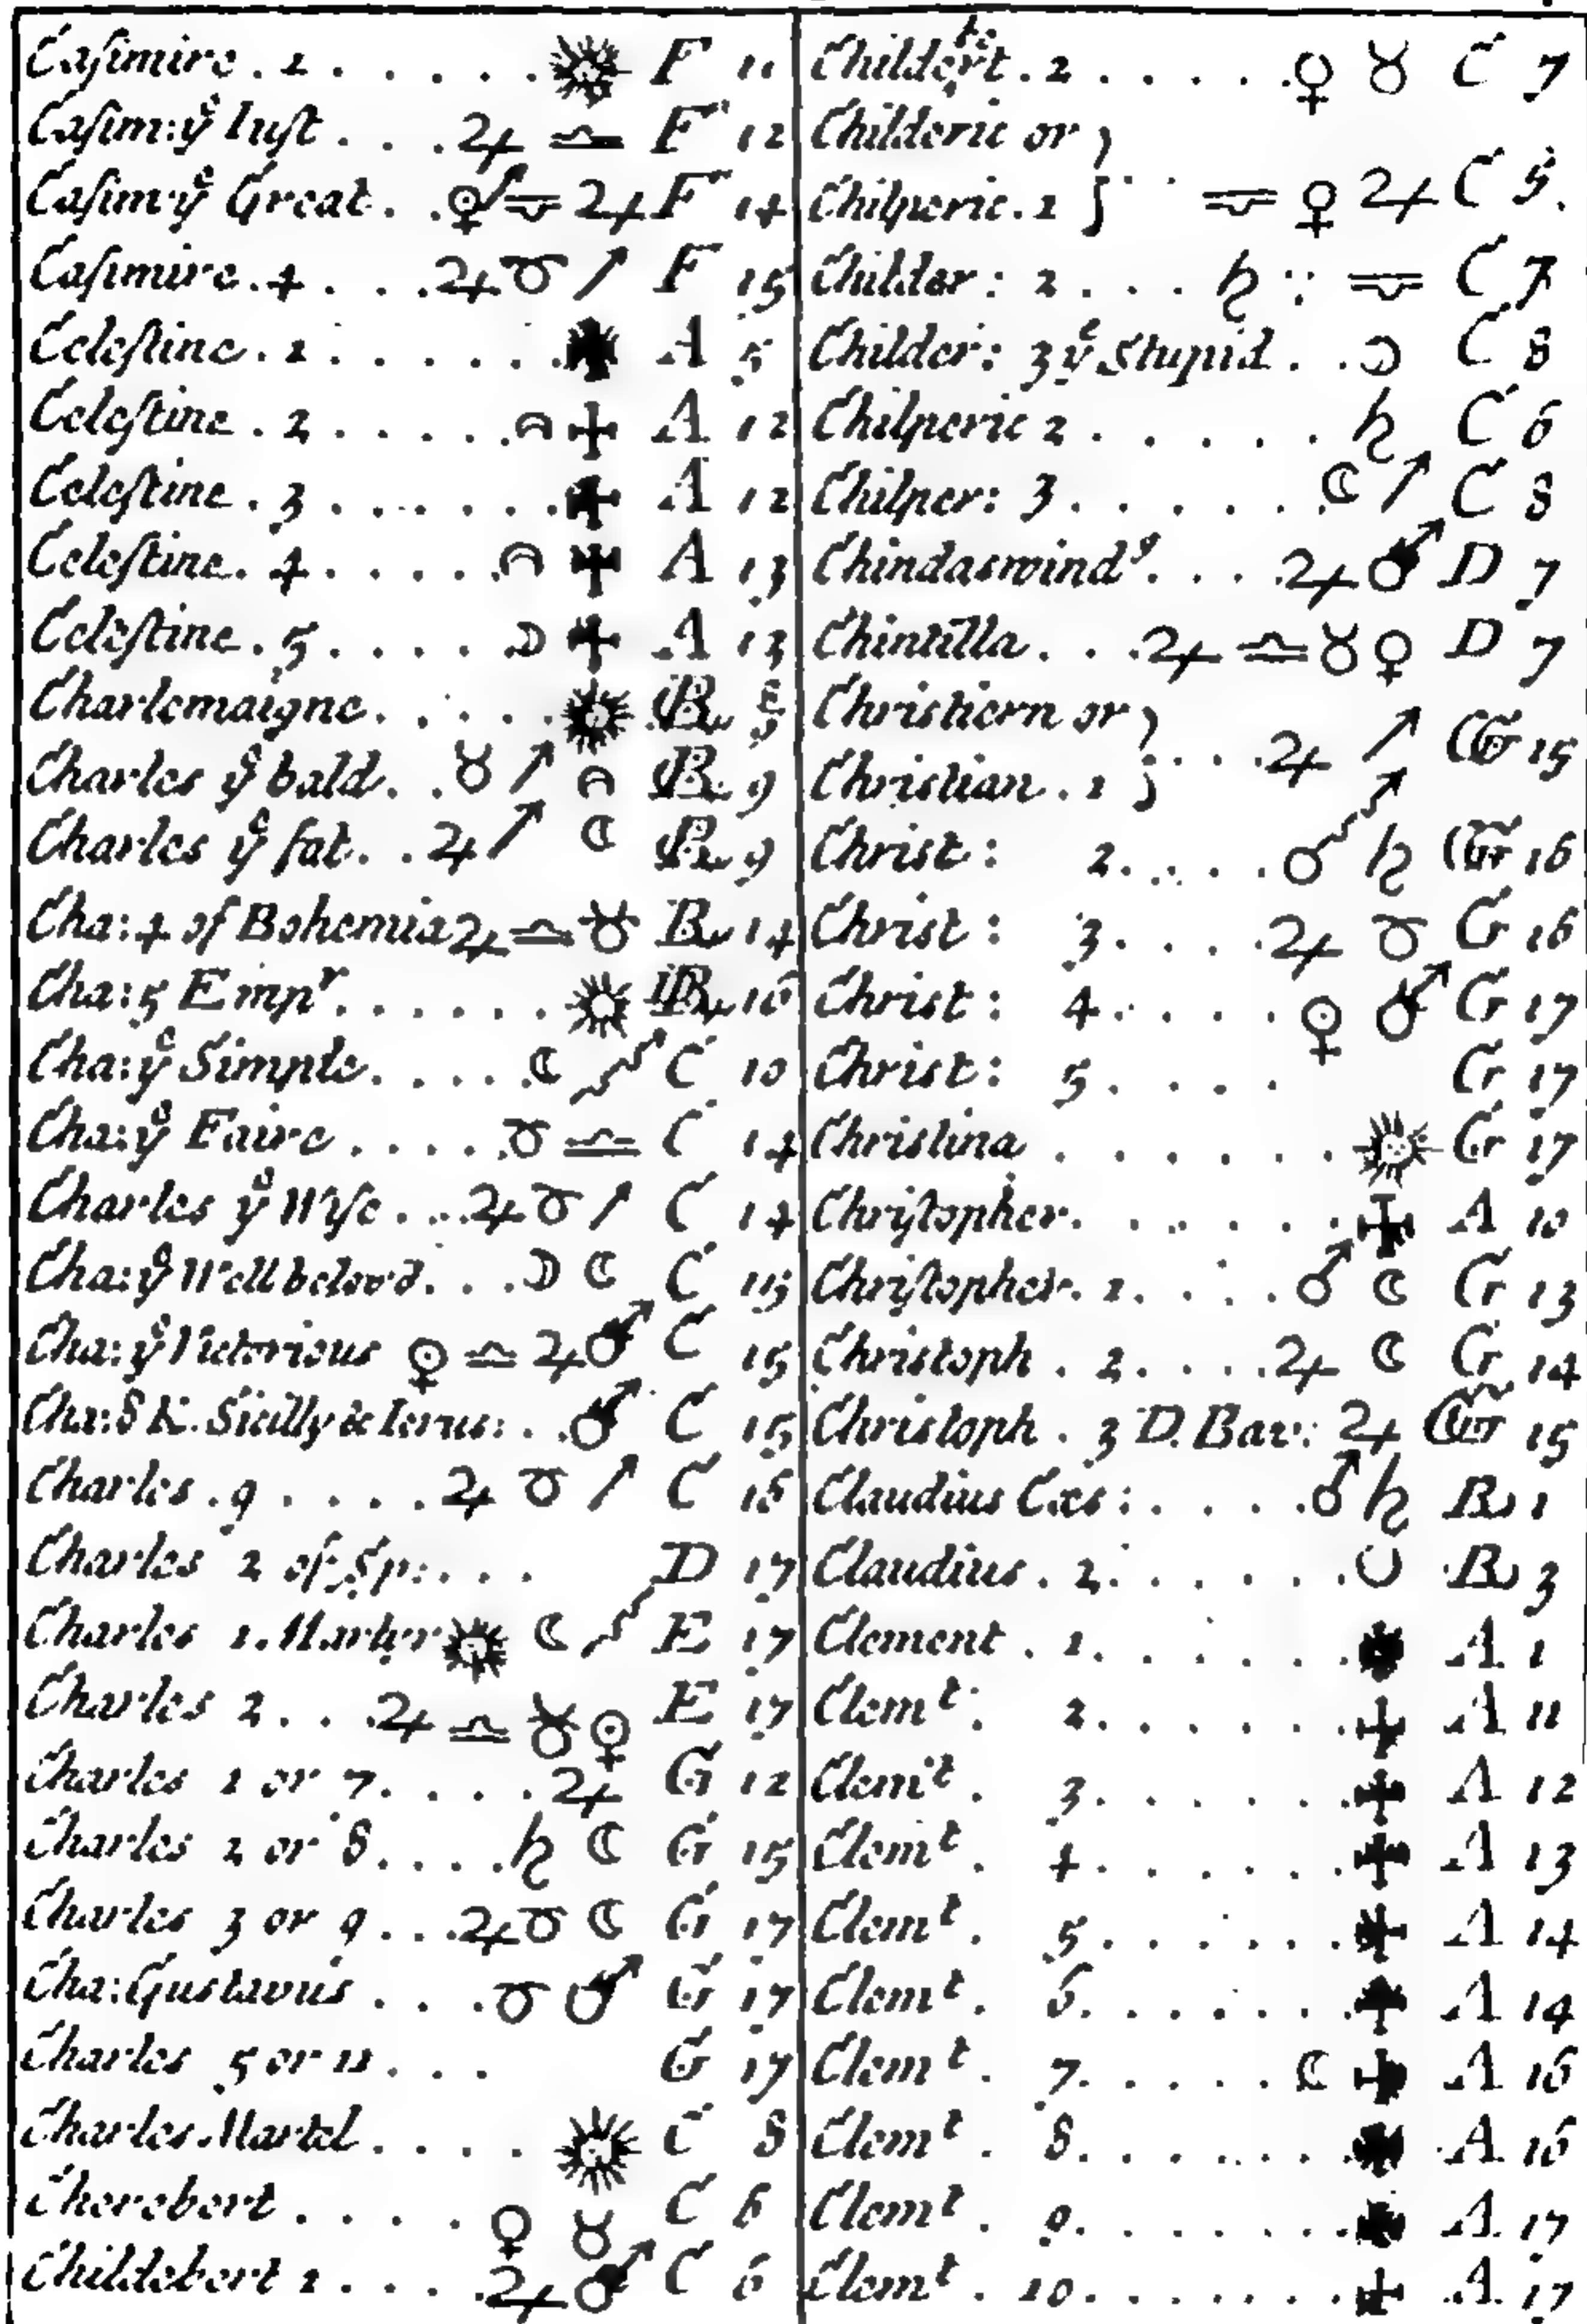 Casimire . 1 . . . . . ☉ F 11
Casim: yͤ Iust . . . ♃ ♎ F 12
Casim: yͤ Great . . ♀ ♎ ♃ F 14
Casimire . 4 . . . ♃ ♉ ↗ F 15
Celestine . 1 . . . . . . ✠ A 5
Celestine . 2 . . . . . ☽ ✠ A 12
Celestine . 3 . . . . . . ✠ A 12
Celestine . 4 . . . . . ☽ ✠ A 13
Celestine . 5 . . . . ☽ ✠ A 13
Charlemaigne . . . . . ☉ B
Charles yͤ bald . . ♉ ↗ ☽ B 9
Charles yͤ fat . . ♃ ↗ ☾ B 9
Cha: 4 of Bohemia ♃ ♎ ♉ B 14
Cha: 5 Empʳ . . . . . . ☉ B 16
Cha: yͤ Simple . . . . . ☾ C 10
Cha: yͤ Faire . . . . . ♉ ♎ C 14
Charles yͤ Wise . . . ♃ ♉ ↗ C 14
Cha: yͤ Well belov'd . . . ☽ ☾ C 15
Cha: yͤ Victorious ♀ ♎ ♃ ♂ C 15
Cha: 8 K. Sicilly & Ierus: . . ♂ C 15
Charles . 9 . . . . ♃ ♉ ↗ C 16
Charles 2 of Sp: . . . D 17
Charles 1. Martyr ☉ ☾ E 17
Charles 2 . . ♃ ♎ ♉ ♀ E 17
Charles 1 or 7 . . . . ♃ G 12
Charles 2 or 8 . . . . ♄ ☾ G 15
Charles 3 or 9 . . . ♃ ♉ ☾ G 17
Cha: Gustavus . . . ♉ ♂ G 17
Charles 5 or 11 . . . G 17
Charles Martel . . . . ☉ C 8
Cherebert . . . . . ♀ ♉ C 6
Childebert 1 . . . . ♃ ♂ C 6
Childebert . 2 . . . . . ♀ ♉ C 7
Childeric or }
Chilperic . 1 } . . ♎ ♀ ♃ C 5 .
Childer: 2 . . . ♄ : ♎ C 7
Childer: 3 yͤ Stupid . . ☽ C 8
Chilperic 2 . . . . . . ♄ C 6
Chilper: 3 . . . . . . ☾ ↗ C 8
Chindaswindꝰ . . . ♃ ♂ D 7
Chintilla . . . ♃ ♎ ♉ ♀ D 7
Christiern or }
Christian . 1 } . . . ♃ ↗ G 15
Christ: 2 . . . . ♂ ♄ G 16
Christ: 3 . . . . ♃ ♉ G 16
Christ: 4 . . . . . ♀ ♂ G 17
Christ: 5 . . . . G 17
Christina . . . . . . . ☉ G 17
Christopher . . . . . . ✠ A 10
Christopher . 1 . . . . ♂ ☾ G 13
Christoph . 2 . . . . ♃ ☾ G 14
Christoph . 3 D. Bav: ♃ G 15
Claudius Cæs: . . . . ♂ ♄ B 1
Claudius . 2 . . . . . . B 3
Clement . 1 . . . . . . ✠ A 1
Clemᵗ . 2 . . . . . . ✠ A 11
Clemᵗ . 3 . . . . . . ✠ A 12
Clemᵗ . 4 . . . . . . ✠ A 13
Clemᵗ . 5 . . . . . . ✠ A 14
Clemᵗ . 6 . . . . . . ✠ A 14
Clemᵗ . 7 . . . . . ☾ ✠ A 16
Clemᵗ . 8 . . . . . . ✠ A 16
Clemᵗ . 9 . . . . . . ✠ A 17
Clemᵗ . 10 . . . . . . ✠ A 17